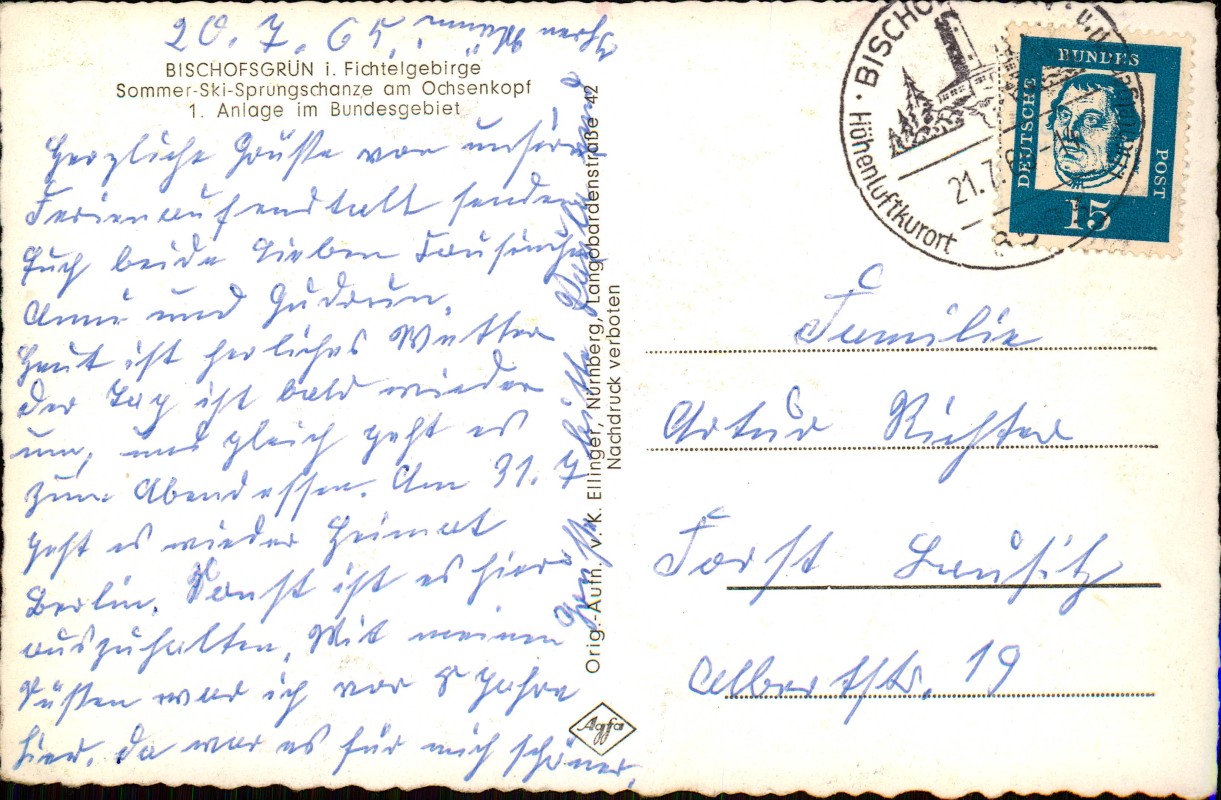 20. 7. 65
BISCHOFSGRÜN i. Fichtelgebirge
Sommer-Ski-Sprungschanze am Ochsenkopf
1. Anlage im Bundesgebiet
Herzliche Grüße von unseren
Ferienaufenstalt senden
Euch beide Lieben
Anni und Gudrun.
Heut ist herliches Wetter
der Tag ist bald wieder
um, und gleich geht es
zum Abendessen. Am 31. 7
geht es wieder Heimat
Berlin. Sonst ist es hier
auszuhalten, Mit meinen
Füßen war ich vor 8 Jahre
hier, da war es für mich schöner.
Grüße bitte
Orig.-Aufn. v. K. Ellinger, Nürnberg, Langobardenstraße 42
Nachdruck verboten
Agfa
BISCHO
Höhenluftkurort
21.7.
DEUTSCHE
BUNDES
POST
15
Familie
Artur Richter
Forst Lausitz
Albertstr. 19